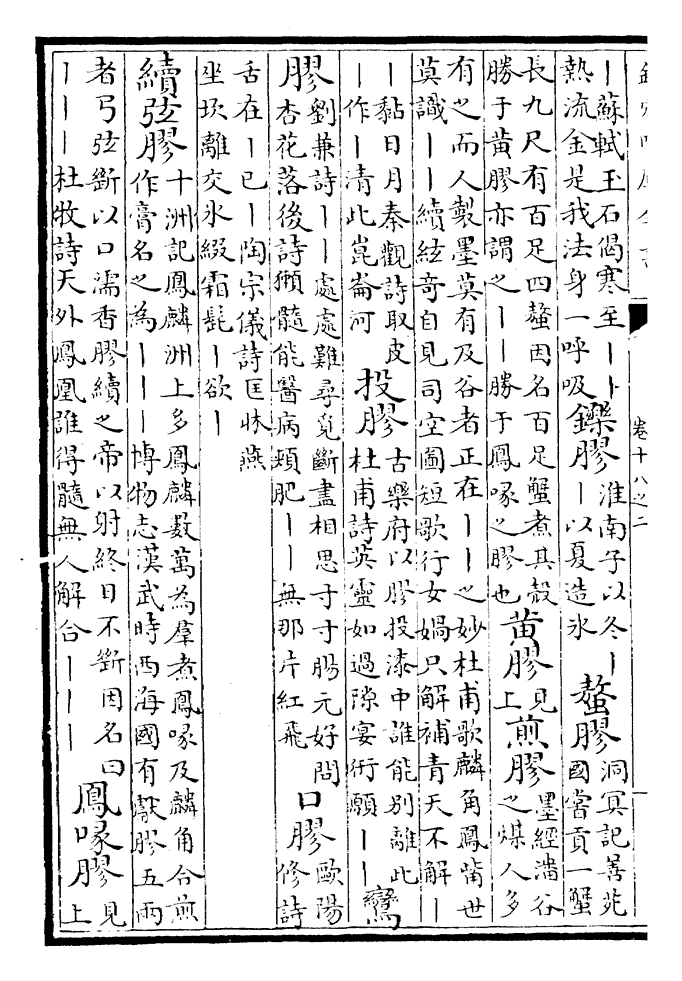 卷十八之二
｜蘇軾玉石偈寒至｜｜
熱流金是我法身一呼吸
鑠膠
淮南子以冬｜
｜以夏造氷
螯膠
洞冥記善苑
國嘗貢一蟹
長九尺有百足四螯因名百足蟹煮其殻
勝于黄膠亦謂之｜｜勝于鳳喙之膠也
黄膠
見
上
煎膠
墨經潘谷
之煤人多
有之而人製墨莫有及谷者正在｜｜之妙杜甫歌麟角鳳觜世
莫識｜｜續絃奇自見司空圖短歌行女媧只解補青天不解｜
｜黏日月秦觀詩取皮
｜作｜清此崑崙河
投膠
古樂府以膠投漆中誰能别離此
杜甫詩英靈如過隙宴衎願｜｜
鸞
膠
劉兼詩｜｜處處難尋覓斷盡相思寸寸腸元好問
杏花落後詩獺髓能醫病頰肥｜｜無那片紅飛
口膠
歐陽
修詩
舌在｜已｜陶宗儀詩匡牀燕
坐坎離交氷綴霜髭｜欲｜
續弦膠
十洲記鳳麟洲上多鳳麟數萬為羣煮鳳喙及麟角合煎
作膏名之為｜｜｜博物志漢武時西海國有獻膠五兩
者弓弦斷以口濡香膠續之帝以射終日不斷因名曰
｜｜｜杜牧詩天外鳳凰誰得髓無人解合｜｜｜
鳳喙膠
見
上